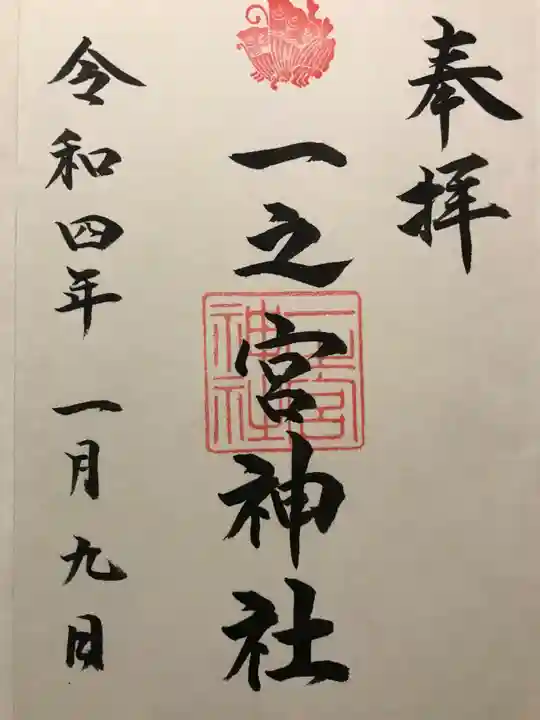 奉拝
一之宮神社
一宮神社
令和四年 一月九日